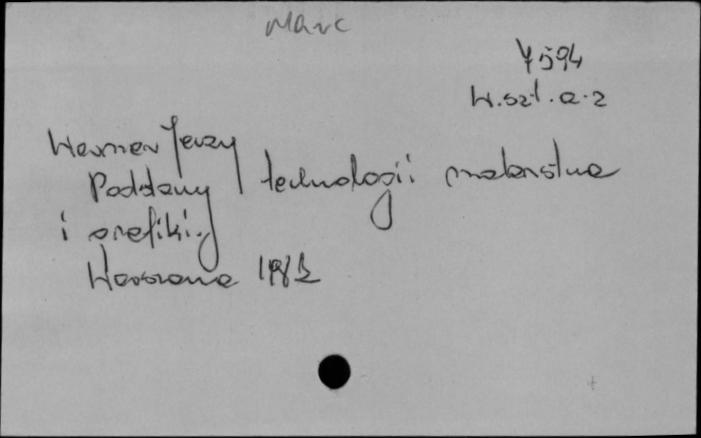 Marc
7594
W.szt.a-2
Werner Jerzy
Podstawy technologii malarstwa
i grafiki.
Warszawa